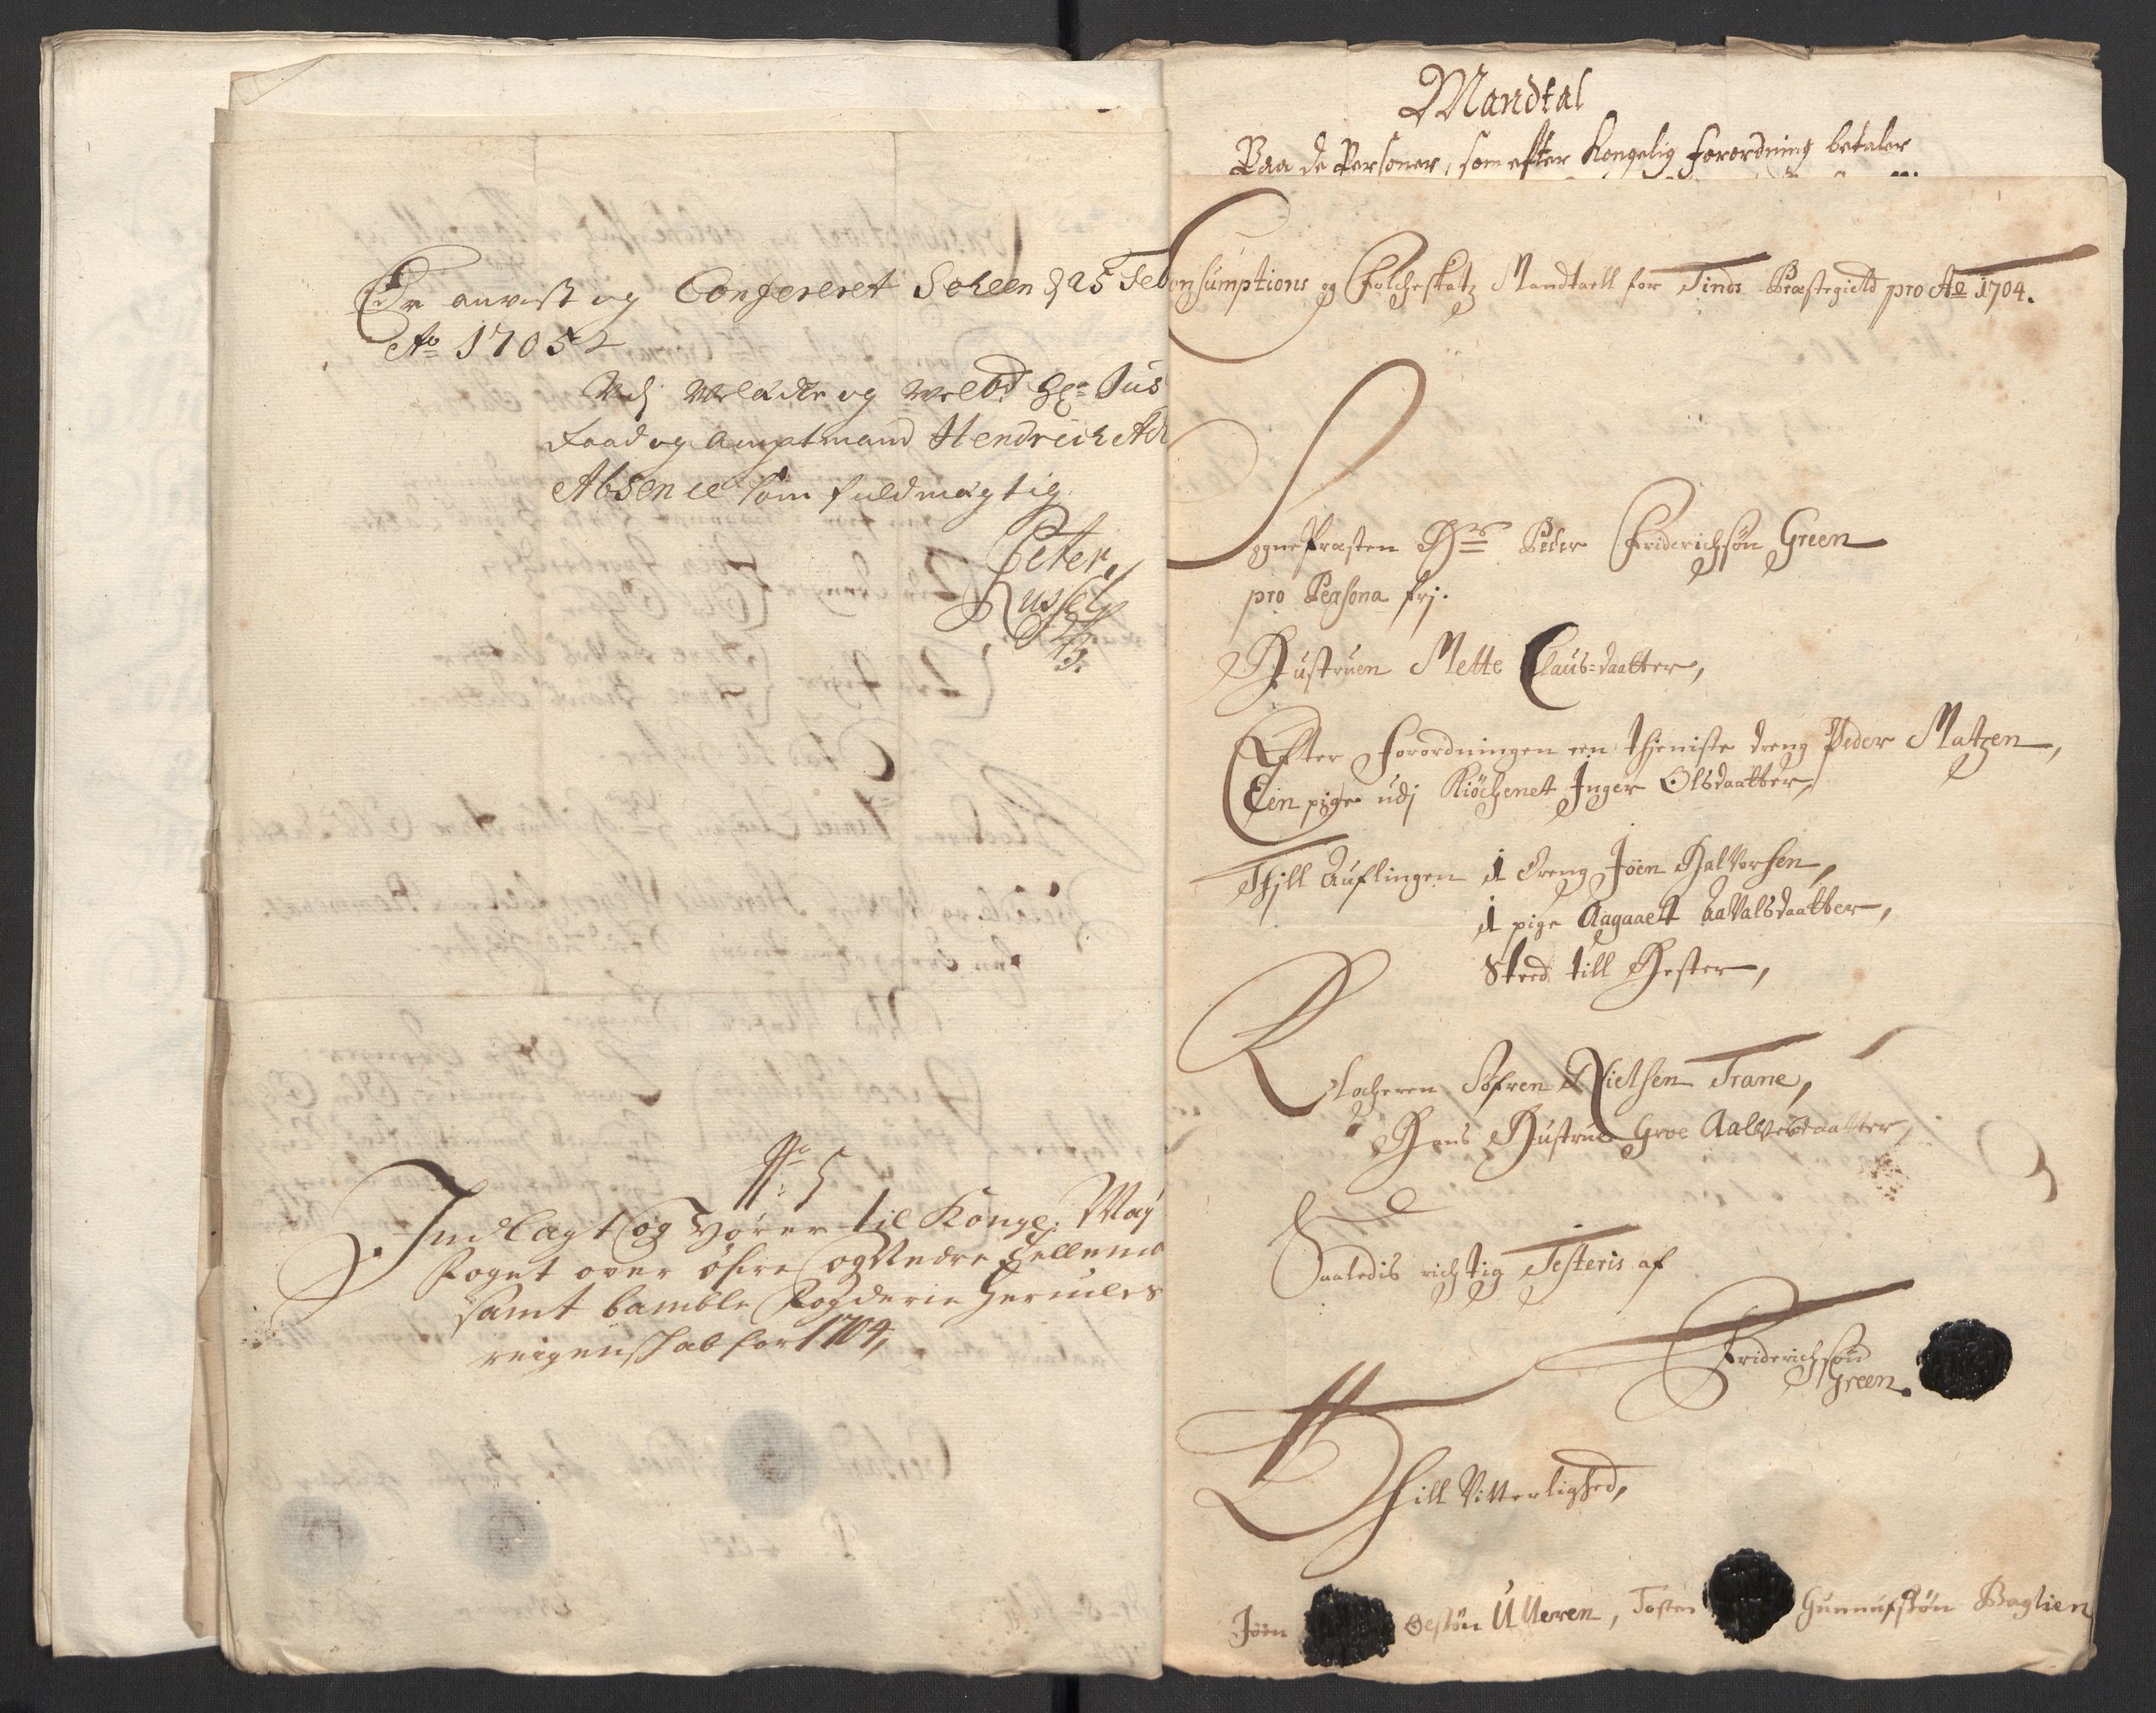 Er anvist og Confereret Scheen d 25 Feb
Ao 1705
Udj Weledle og Welbd Hr Jus
Raad og Amptmand Hendrich Ad
Absence som fuldmægtig
Peter
Russel
No 5
Indlagt og hører til Kongl: May
Foget over öfre og Nedre Tellema
samt bamble Fogderie Hermules
reigenskab for 1704,
Mandtal
Paa de Personer, som efter Kongelig forordning betaler
Consumptions og Folcheskatz Mandtaell for Tinds Præstegield pro Ao 1704.
SognePræsten Hr Peder Friderichsøn Green
pro Persona frj.
Hustruen Mette Claus=daatter,
Efter forordningen een thieniste dreng Peder Matzen,
Een pige udj Kiöchenet Inger Olsdaatter,
Thill Auflingen 1 dreng Jöen Halvorsen,
1 pige Aagaaet Aavalsdaatter,
Sted till Hester,
Klocheren Söfren Nielsen Trane,
Hans Hustrue Groe Aalvesdaatter,
Saaledis richtig Testeris af
Friderichsøn
Green.
Thill Vitterlighed,
Jöen Ulleren, Tosten Gunnufsøn Baglien